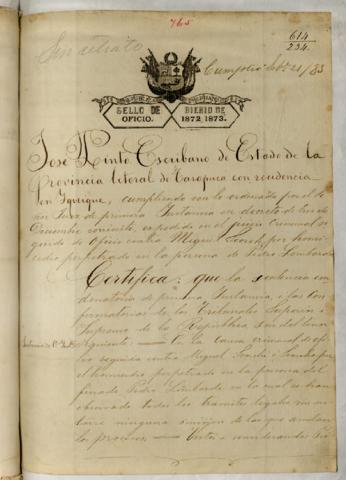 765
614
234.
Sin retrato
Cumplió Set 21/83
SELLO DE OFICIO.
BIENIO DE 1872, 1873.
José Pinto Escribano de Estado de la
Provincia litoral de Tarapacá con residencia
en Iquique, cumpliendo con lo ordenado por el Se
ñor Juez de primera Instancia en decreto de tres de
Diciembre corriente, expedido en el juicio Criminal se
guido de oficio contra Miguel por homi
cidio perpetrado en la persona de Pedro Lombardo
Certifica: que la sentencia con
denatoria de primera Instancia i las con
firmatorias de los Tribunales Superior i
Supremo de la República son del tenor
siguiente — En la causa criminal de ofi
cio seguida contra Miguel por
el homicidio perpetrado en la persona del
finado Pedro Lombardo en la cual se han
observado todos los tramites legales sin no
tarse ninguna omisión de las que anulan
los procesos — Vistos i considerando: Pri